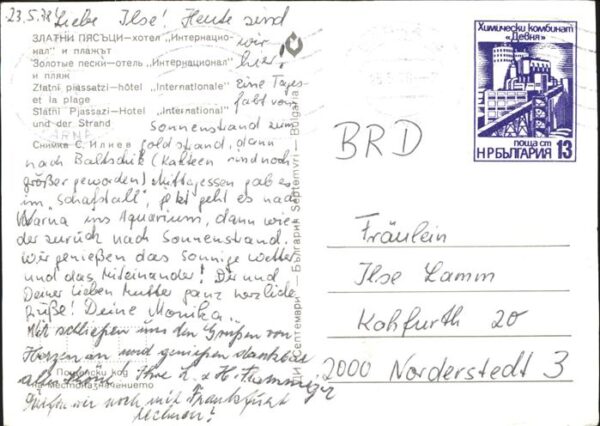 23.5.78 Liebe Ilse! Heute sind
wir
hier,
eine Tages-
fahrt vom
Sonnenstrand zum
Goldstrand, dann
nach Baltschik (Kakteen sind noch
größer geworden) Mittagessen gab es
im "Schafstall", jetzt geht es nach
Warna ins Aquarium, dann wie-
der zurück nach Sonnenstrand.
Wir genießen das sonnige Wetter
und das Miteinander! Dir und
Deiner lieben Mutter ganz herzliche
Grüße! Deine Monika..
Wir schließen uns den Grüßen von
Herzen an und genießen dankbar
alles
Ihre
H.
Dürfen wir noch mit Frankfurt
rechnen!
ЗЛАТНИ ПЯСЪЦИ—хотел „Интернацио-
нал" и плажът
Золотые пески—отель „Интернационал"
и пляж
Zlatni piassatzi—hôtel „Internationale"
et la plage
Slatni Pjassazi—Hotel „International"
und der Strand
Снимка С. Илиев
ДИ „Септември" — България Septemvri — Bulgaria
Пощенски код
на местоназначението
VARNA
Химически комбинат
„Девня"
поща ст
НРБЪЛГАРИЯ 13
BRD
Fräulein
Ilse Lamm
Kohfurth 20
2000 Norderstedt 3